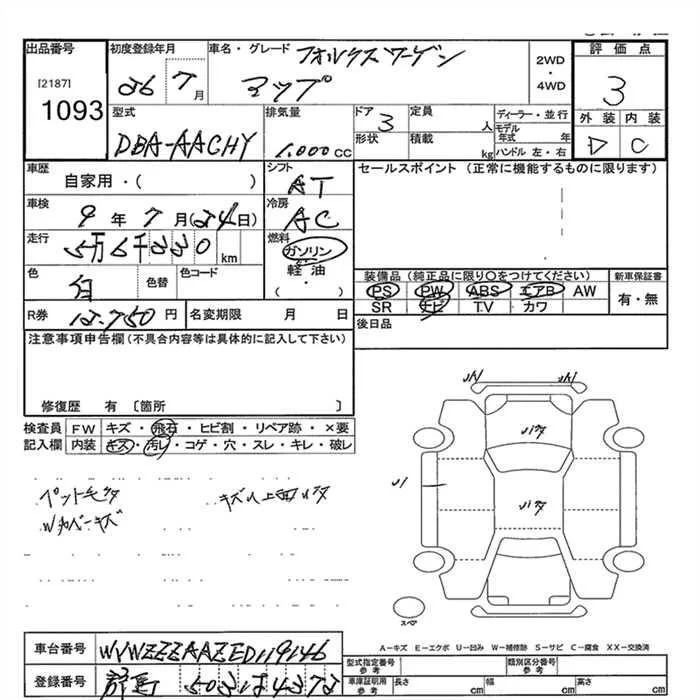 出品番号 初度登録年月 車名・グレード フォルクスワーゲン 2WD ・ 4WD 評価点
[2187] 26 7月 アップ 3
1093 型式 排気量 ドア 3 定員 人 ディーラー・並行 外装 内装
DBA-AACHY 1.000cc 形状 積載 kg モデル年式 年 D C
ハンドル 左・右
車歴 自家用・( ) シフト AT セールスポイント (正常に機能するものに限ります)
車検 9年7月(24日) 冷房 AC
走行 5万6千330 km 燃料 ガソリン
色 白 色替 色コード 軽油 ・ ( ) 装備品(純正品に限り〇をつけてください) 新車保証書
PS PW ABS エアB AW 有・無
SR ナビ T.V カワ
R券 12,750円 名変期限 月 日 後日品
注意事項申告欄(不具合内容等は具体的に記入して下さい)
修復歴 有 〔箇所 〕
検査員 FW キズ・飛石・ヒビ割・リペア跡・×要
記入欄 内装 キズ・汚レ・コゲ・穴・スレ・キレ・破レ
ペット毛
Wカバーキズ
スペア
A-キズ E-エクボ U-凹み W-補修跡 S-サビ C-腐食 XX-交換済
車台番号 WVWZZZAAZED119146 型式指定番号 参考 類別区分番号 参考
登録番号 群馬 503 は 4372 車庫証明用 参考 長さ cm 幅 cm 高さ cm